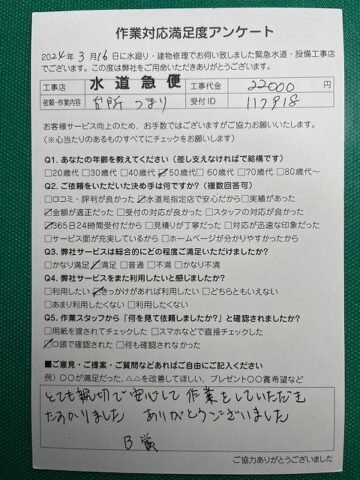 作業対応満足度アンケート
2024年3月16日に水廻り・建物修理でお伺い致しました緊急水道・設備工事店
でございます。この度は弊社をご用命いただきありがとうございます。
工事店 水道急便 工事代金 22000 円
依頼・作業内容 台所 つまり 受付ID 117918
お客様サービス向上のため、お手数ではございますがご協力お願いいたします。
(※心当たりのあるものすべてにチェックをお願いします)
Q1. あなたの年齢を教えてください(差し支えなければで結構です)
□20歳代 □30歳代 □40歳代 ☑50歳代 □60歳代 □70歳代 □80歳代～
Q2. ご依頼をいただいた決め手は何ですか?(複数回答可)
□口コミ・評判が良かった ☑水道局指定店で安心だから □実績があった
☑金額が適正だった □受付の対応が良かった □スタッフの対応が良かった
☑365日24時間受付だから □見積りが丁寧だった □対応が迅速な印象だった
□サービス面が充実しているから □ホームページが分かりやすかったから
Q3. 弊社サービスは総合的にどの程度ご満足いただけましたか?
□かなり満足 ☑満足 □普通 □不満 □かなり不満
Q4. 弊社サービスをまた利用したいと感じましたか?
□利用したい ☑きっかけがあれば利用したい □どちらともいえない
□あまり利用したくない □利用したくない
Q5. 作業スタッフから「何を見て依頼しましたか?」と確認されましたか?
□用紙を渡されてチェックした □スマホなどで直接チェックした
☑口頭で確認された □何も確認されなかった
■ご意見・ご提案・ご質問などあればご自由にご記入ください
例)〇〇が満足だった、△△を改善してほしい、プレゼント〇〇賞希望など
とても親切で安心して作業をしていただき
たすかりました ありがとうございました
B賞
ご協力ありがとうございました